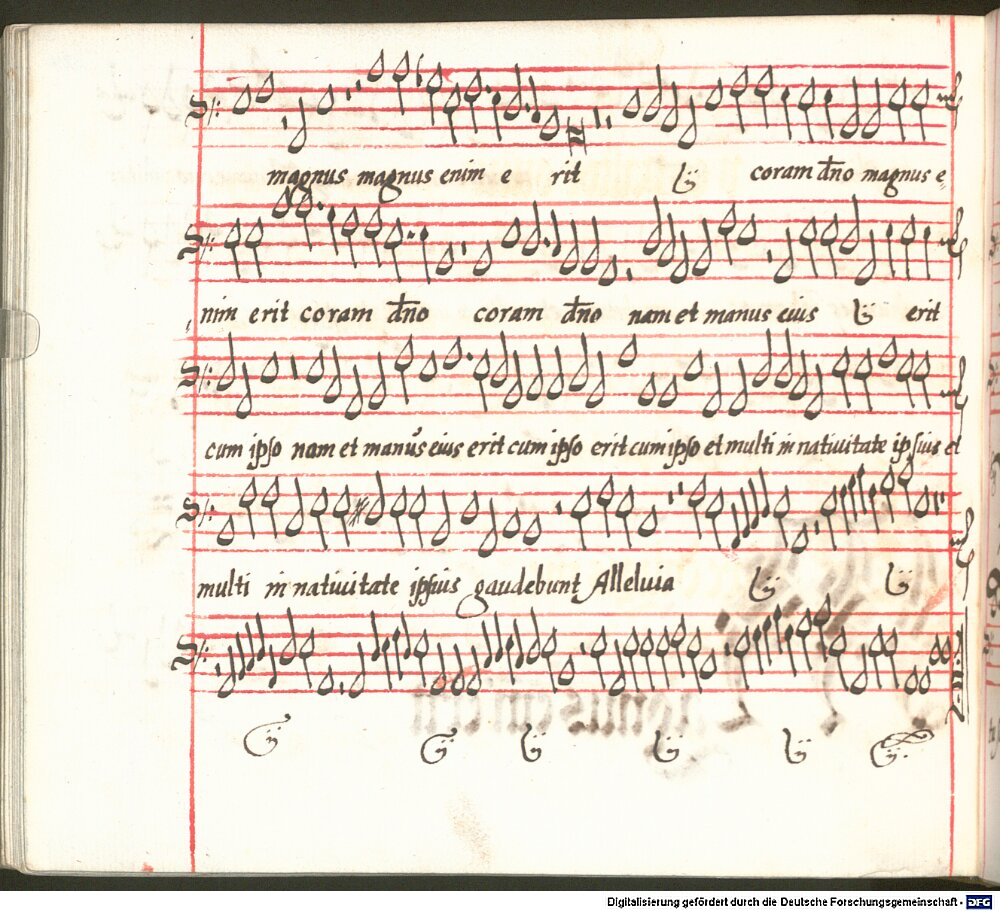 magnus magnus enim e rit ij coram dn̄o magnus e-
nim erit coram dn̄o coram dn̄o nam et manus eius ij erit
cum ipso nam et manus eius erit cum ipso erit cum ipso et multi in natiuitate ipsius et
multi in natiuitate ipsius gaudebunt Alleluia ij ij
ij ij ij ij ij ij.
Digitalisierung gefördert durch die Deutsche Forschungsgemeinschaft - DFG